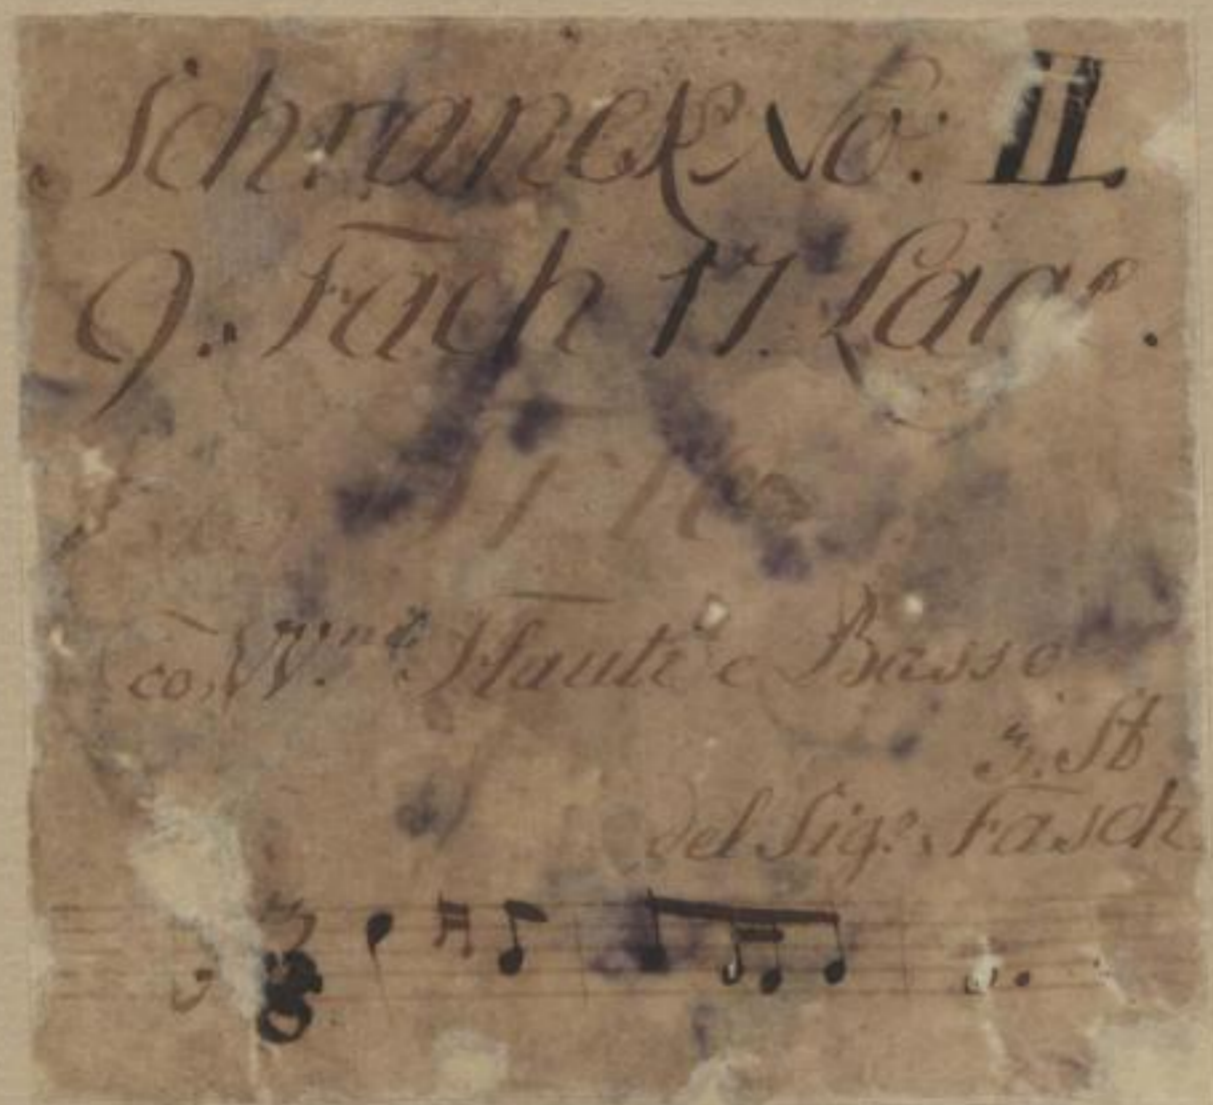 Schranck No: II.
9. Fach 17. Lage.
co, VV.ni Flauti e Basso.
3. St
del Sig.e Fasch